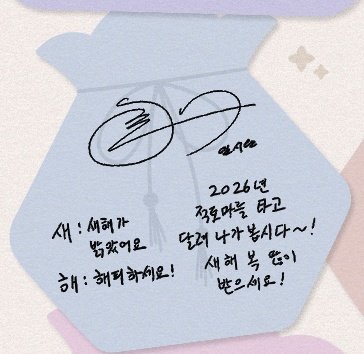 안시안
새 : 새해가
밝았어요
해 : 해피하세요!
2026년
적토마를 타고
달려 나가 봅시다~!
새해 복 많이
받으세요!